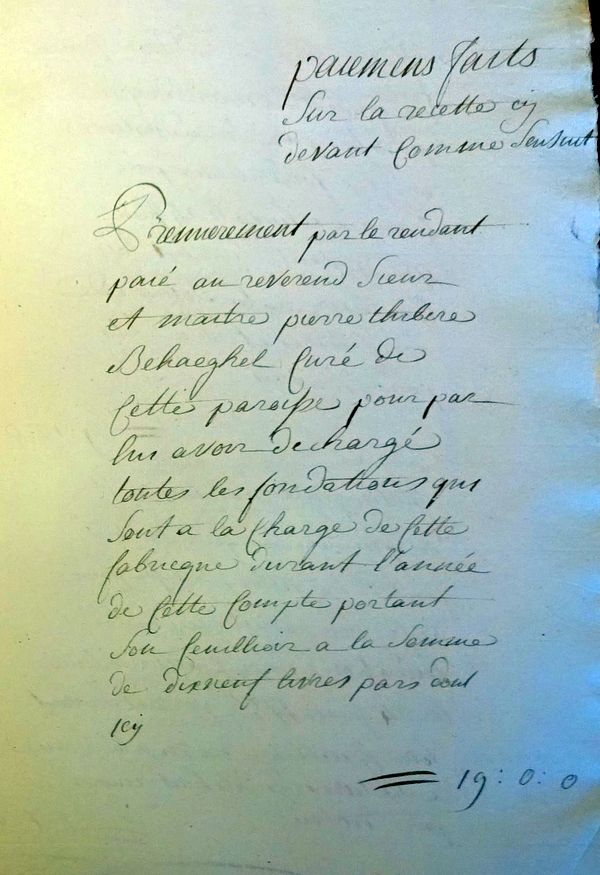 paiemens faits
Sur la recette cy
devant Comme Sensuit
Premierement par le rendant
paié au reverend Sieur
et maitre pierre thibere
Behaeghel Curé de
Cette paroisse pour par
lui avoir dechargé
toutes les fondations qui
Sont a la Charge de Cette
fabrucque durant l'année
de Cette Compte portant
Son a la Somme
de dixneuf livres paris dont
icy
19 : 0 : 0